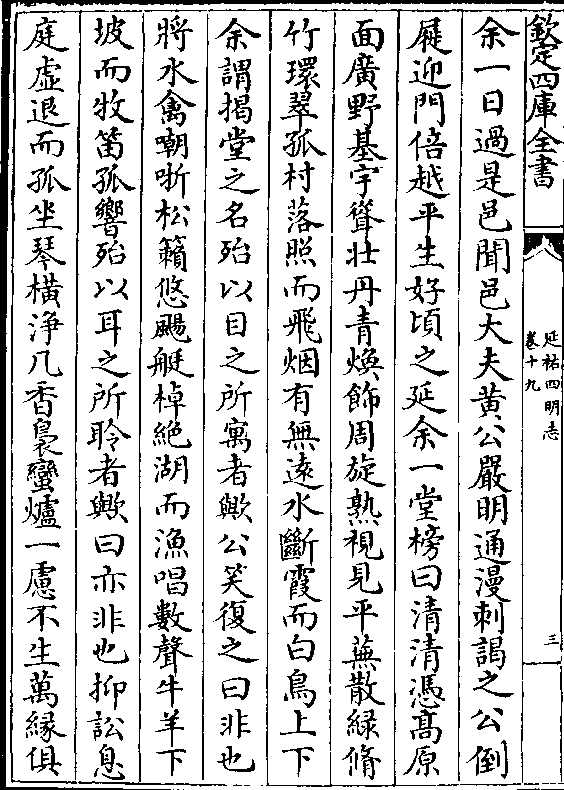 欽定四庫全書
延祐四明志
卷十九
三
余一日過是邑聞邑大夫黄公嚴明通漫刺謁之公倒
屣迎門倍越平生好頃之延余一堂榜曰清清憑髙原
面廣野基宇聳壮丹青煥飾周旋熟視見平蕪散緑脩
竹環翠孤村落照而飛烟有無遠水斷霞而白鳥上下
余謂揭堂之名殆以目之所寓者歟公笑復之曰非也
將水禽嘲哳松籟悠颺艇棹絶湖而漁唱數聲牛羊下
坡而牧笛孤響殆以耳之所聆者歟曰亦非也抑訟息
庭虚退而孤坐琴横浄几香裊蠻爐一慮不生萬縁俱